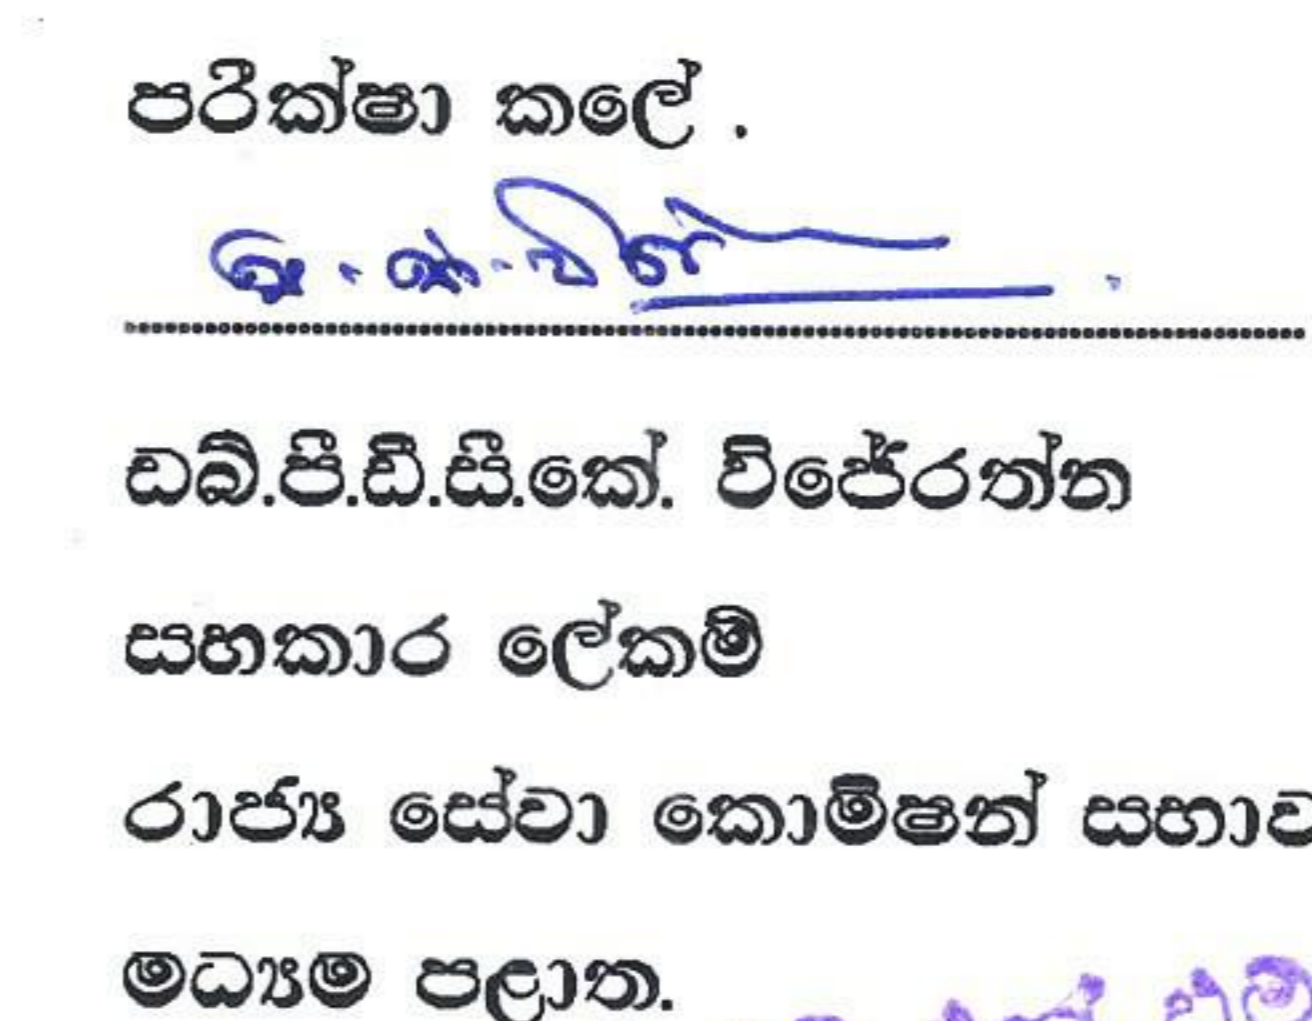 පරීක්ෂා කලේ .
ඩබ්.පී.ඩී.සී.කේ. විජේරත්න
සහකාර ලේකම්
රාජ්‍ය සේවා කොමිෂන් සභාව
මධ්‍යම පළාත.